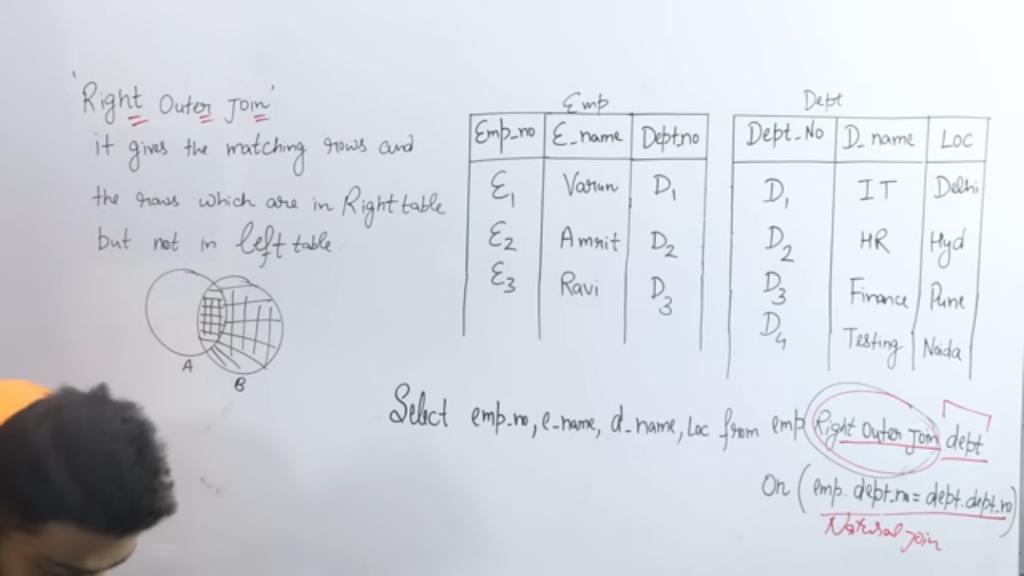 'Right Outer Join'
it gives the matching rows and
the rows which are in Right table
but not in left table
A
B
Emp
Emp_no E_name Dept_no
E1 Varun D1
E2 Amrit D2
E3 Ravi D3
Dept
Dept_No D_name Loc
D1 IT Delhi
D2 HR Hyd
D3 Finance Pune
D4 Testing Noida
Select emp_no, e_name, d_name, Loc from emp Right Outer Join dept
On (emp.dept_no = dept.dept_no)
Natural join